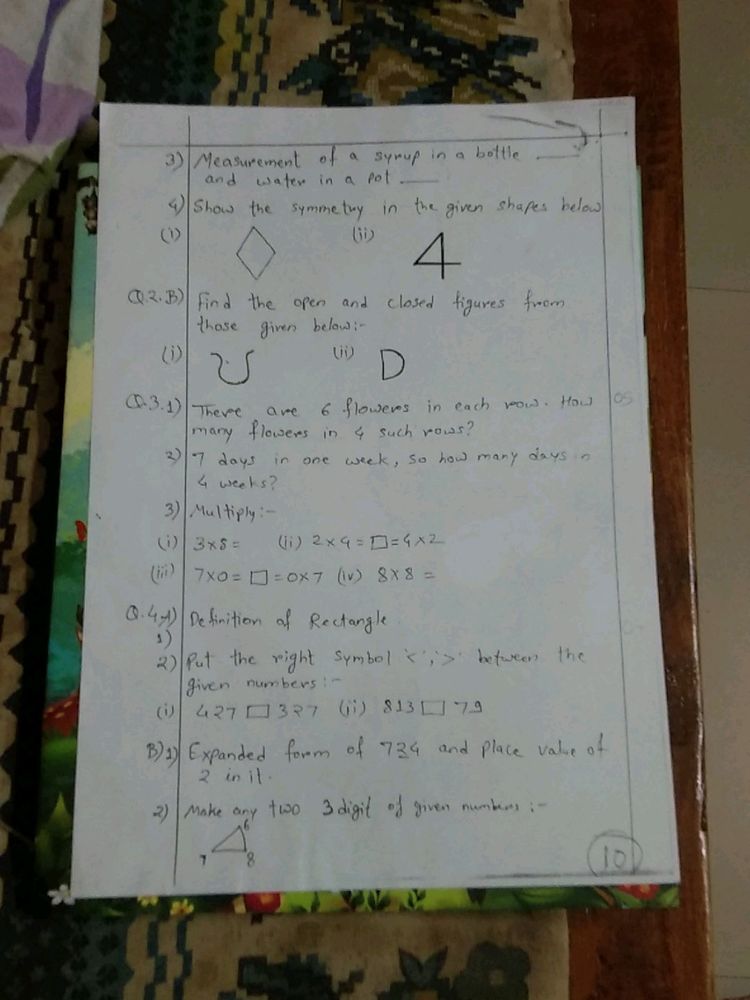 3) Measurement of a syrup in a bottle ____
and water in a pot ____
4) Show the symmetry in the given shapes below
(i) (ii) 4
Q.2.B) Find the open and closed figures from
those given below:-
(i) (ii) D
Q.3.1) There are 6 flowers in each row. How
many flowers in 4 such rows?
05
2) 7 days in one week, so how many days in
4 weeks?
3) Multiply:-
(i) 3x8= (ii) 2x4=□=4x2
(iii) 7x0=□=0x7 (iv) 8x8=
Q.4A) Definition of Rectangle
1)
2) Put the right symbol '<','>' between the
given numbers:-
(i) 427 □ 327 (ii) 813 □ 79
B)1) Expanded form of 724 and place value of
2 in it.
2) Make any two 3 digit of given numbers:-
6
7 8
10